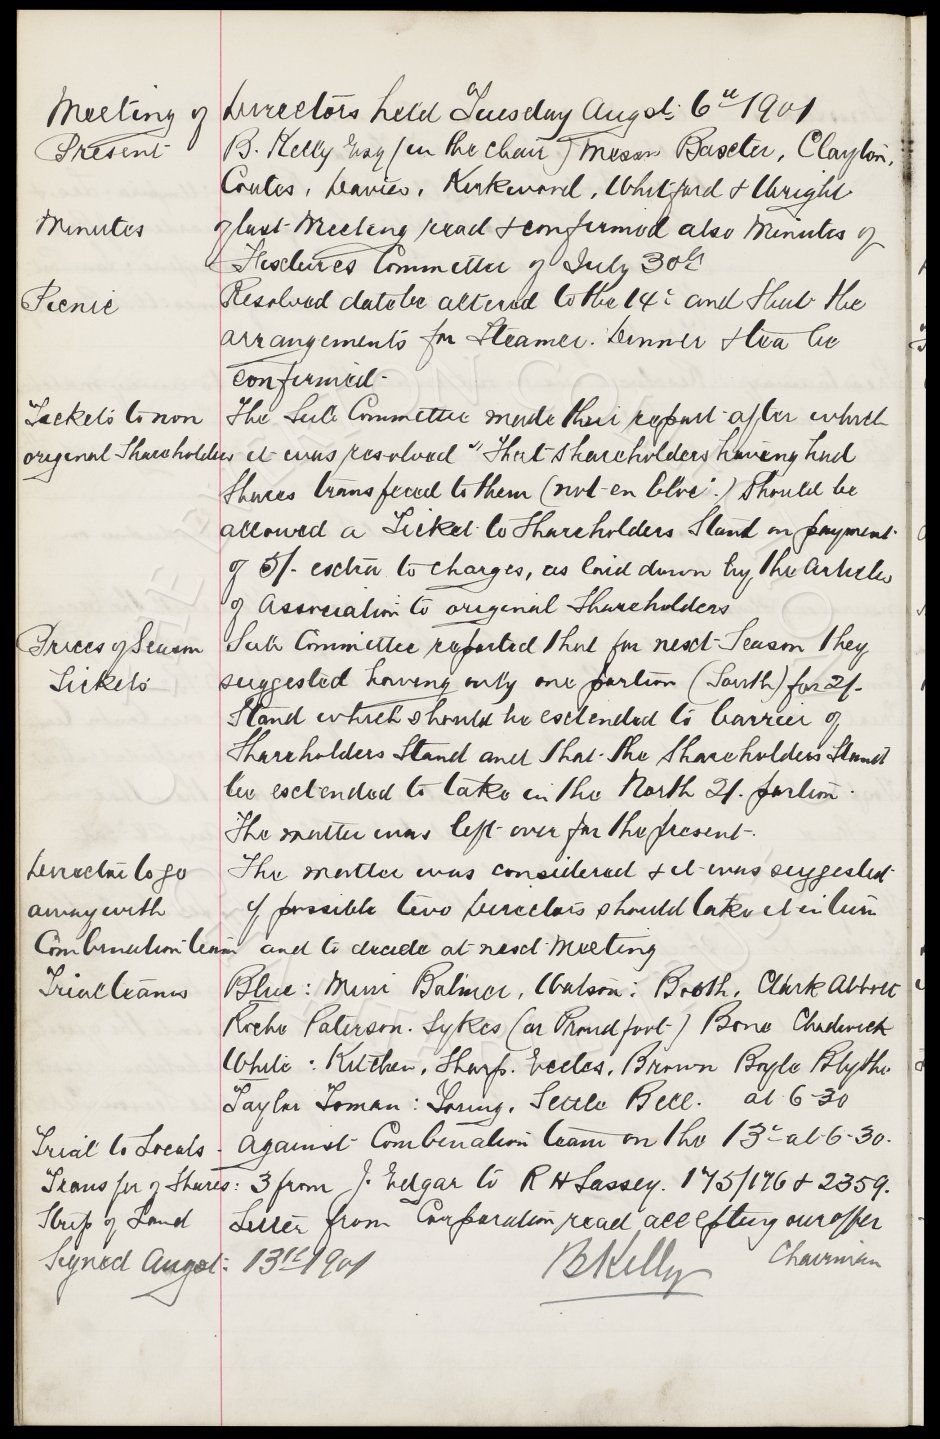 Meeting of Directors held Tuesday Augst: 6th 1901
Present B. Kelly Esq (in the chair) Messrs Baxter, Clayton,
Coates, Davies, Kirkwood, Whitford & Wright
Minutes of last Meeting read & confirmed also Minutes of
Fixtures Committee of July 30th
Picnic Resolved date be altered to the 14th and that the
arrangements for Steamer. Dinner & tea be
confirmed.
Tickets to non The Sub Committee made their report after which
original Shareholders it was resolved "That Shareholders having had
Shares transfered to them (not en bloc.) should be
allowed a Ticket to Shareholders Stand on payment
of 5/- extra to charges, as laid down by the Articles
of Association to original Shareholders
Prices of Season Sub Committee reported that for next Season they
Tickets suggested having only one portion (South) for 21/-
Stand which should be extended to barrier of
Shareholders Stand and that the Shareholders Stand
be extended to take in the North 21/. portion.
The matter was left over for the present.
Director to go The matter was considered & it was suggested
away with if possible two Directors should take it in turn
Combination team and to decide at next Meeting
Trial teams Blue: Muir Balmer, Watson: Booth, Clark Abbott
Roche Paterson. Sykes (or Proudfoot) Bone Chadwick
White: Kitchen, Sharp. Eccles, Brown Boyle Blythe
Taylor Toman: Young, Settle Bell. at 6-30
Trial to Locals - against Combination team on the 13th at 6-30.
Transfer of Shares: 3 from J. Edgar to R H Sassey. 175/176 & 2359.
Strip of Land Letter from Corporation read accepting our offer
Signed Augst: 13th 1901 B Kelly Chairman